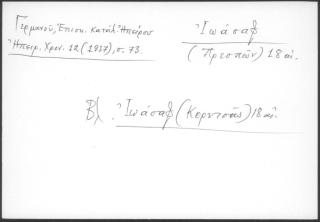 Γερμανοῦ, Ἐπισκ. κατάλ. Ἠπείρου
Ἠπειρ. Χρον. 12 (1937), σ. 73.
Ἰωάσαφ
(Πρεσπῶν) 18 αἰ.
Βλ. Ἰωάσαφ (Κορυτσᾶς) 18 αἰ.